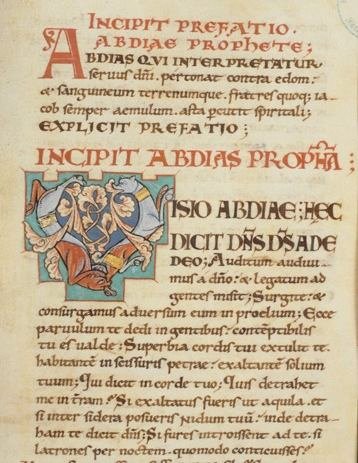 INCIPIT PREFATIO.
ABDIAE PROPHETE;
ABDIAS QVI INTERPRETATUR
servus dn̄i. personat contra edom:
& sanguineum terrenumque. fratres quoq; ia-
cob semper aemulum. asta percutit spiritali;
EXPLICIT PREFATIO;
INCIPIT ABDIAS PROPHA;
VISIO ABDIAE; HEC
DICIT DN̄S DS̄ ADE
DEO; Auditum audivi-
mus a dño: & legatum ad
gentes misit; Surgite: &
consurgamus adversum eum in proelium; Ecce
parvulum te dedi in gentibus: contēptibilis
tu es valde: Superbia cordis tui extulit te.
habitantē in scissuris petrae: exaltantē solium
tuum; Qui dicit in corde tuo; Quis detrahet
me in trām? Si exaltatus fueris ut aquila. et
si inter sidera posueris nidum tuū: inde detra-
ham te dicit dn̄s; Si fures introissent ad te. si
latrones per noctem. quomodo conticuisses?